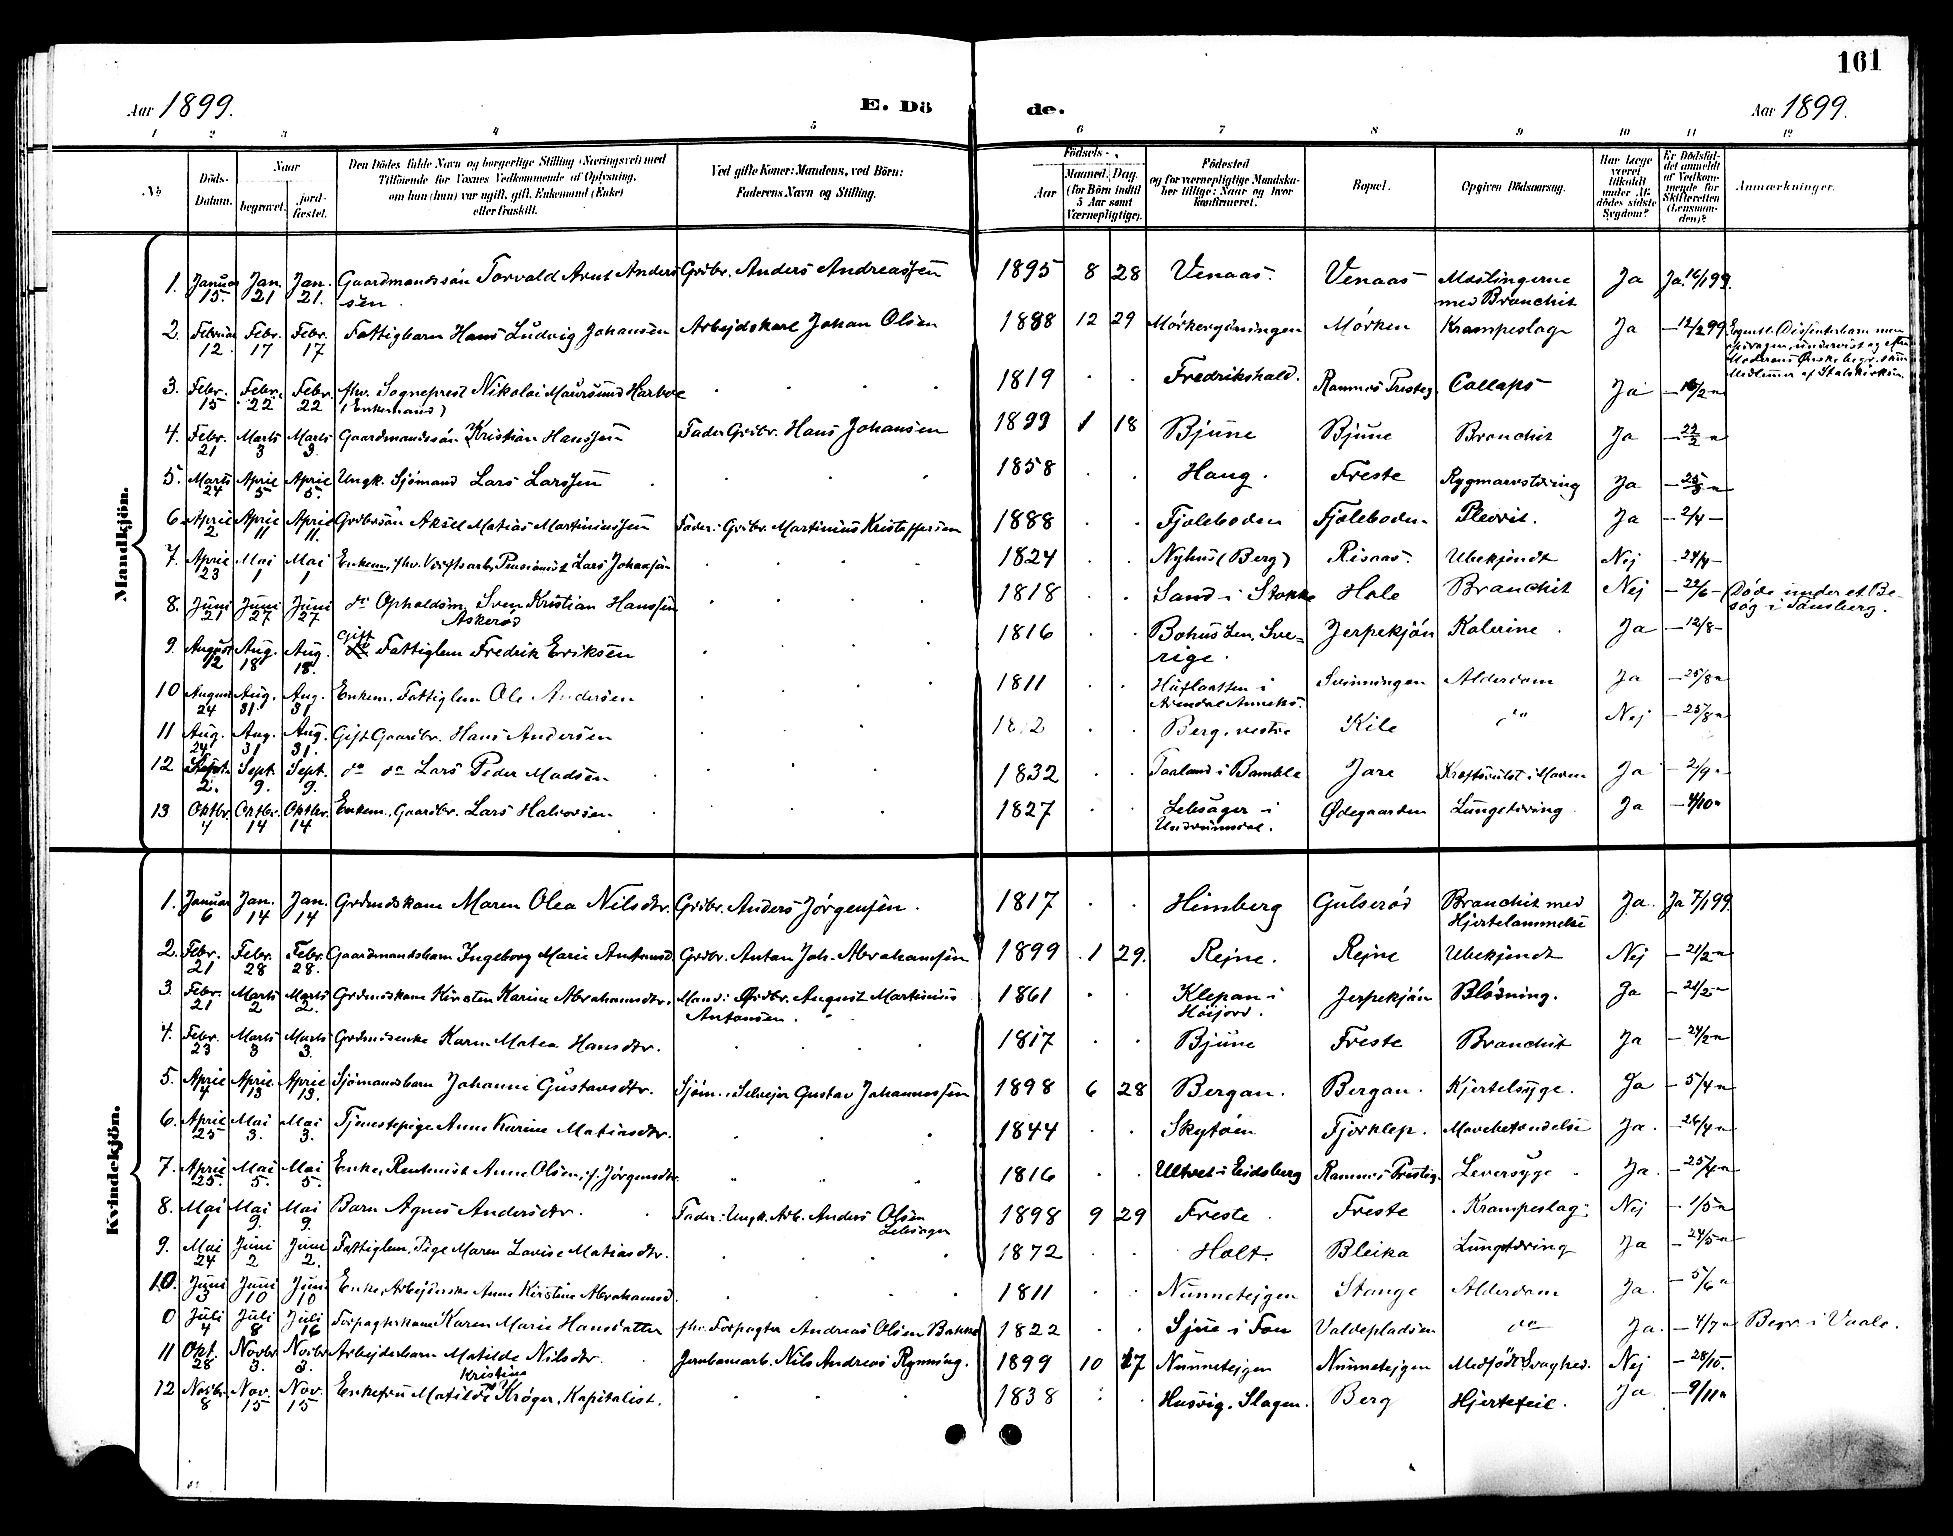 161
Aar 1899. E. Dö de. Aar 1899.
1 2 3 4 5 6 7 8 9 10 11 12
No Döds-Datum. Naar begravet. jordfæstet. Den Dödes fulde Navn og borgerlige Stilling (Næringsvei) med Tilföiende for Voxnes Vedkommende af Oplysning, om han (hun) var ugift, gift, Enkemand (Enke) eller fraskilt. Ved gifte Koner: Mandens, ved Börn: Faderens Navn og Stilling. Födsels- Aar Maaned. Dag. (for Börn indtil 5 Aar samt Værnepligtige). Födested og for værnepligtige Mandskaber tillige: Naar og hvor konfirmeret. Bopæl. Opgiven Dödsaarsag. Har Læge været tilkaldt under Afdödes sidste Sygdom? Er Dödsfaldet anmeldt af Vedkommende for Skifteretten (Lensmanden)? Anmærkninger.
Mandkjön.
1. Januar 15. Jan. 21 Jan. 21. Gaardmandssön Torvald Arnt Anderssen. Grdbr. Anders Andreassen 1895 8 28 Venaas. Venaas Mæslingerne med Bronchit Ja Ja 16/1 99.
2. Februar 12. Febr. 17 Febr. 17 Fattigbarn Hans Ludvig Johansen Arbejdskarl Johan Olsen 1888 12 29 Mörken Krampeslag Ja — 12/2 99
3. Febr. 15 Febr. 22 Febr. 22 fhv. Sogneprest Nikolai Maursund Harboe (Enkemand) 1819 Fredrikshald. Ramnes Presteg. Collaps Ja
4. Febr. 21 Marts 3 Marts 3. Gaardmandssön Kristian Hanssen Fader Grdbr. Hans Johansen 1899 1 18 Bjune Bjune Bronchit Ja — 22/2 "
5. Marts 24 April 5 April 5. Ungk. Sjömand Lars Larssen 1858 Haug. Freste Rygmarvstæring Ja
6. April 2 April 11 April 11. Grdbrsön Aksel Matias Martiniussen Fader: Grdbr. Martinius Kristoffersen 1888 Fjæleboden Fjæleboden Plevrit. Ja — 2/4 —
7. April 23 Mai 1 Mai 1 Enkem, fhv. Værftsarb. Pensionist Lars Johansen 1824 Nyhus (Berg) Risaas. Ubekjendt Nej 24/4 —
8. Juni 21 Juni 27 Juni 27 do Opholdsm. Sven Kristian Hanssen Askerød 1818 Sand i Stokke Hole Bronchit Nej — 22/6 — Døde under et Besøg i Tønsberg.
9 August 12 Aug. 18 Aug. 18. Gift Fattiglem Fredrik Eriksen 1816 Bohus Len, Sverige. Jerpekjön Kolerine. Ja — 12/8 —
10 August 24 Aug. 31 Aug. 31 Enkem. Fattiglem Ole Andersen 1811 i Arendal Svinningen Alderdom Ja — 25/8 "
11 Aug. 24 Aug. 31 Aug. 31. Gift Gaardbr. Hans Andersen Berg, vestre Kile do Nej — 25/8 "
12 Sept. 2. Sept. 9. Sept. 9. do do Lars Peder Madsen 1832 Taaland i Bamble Jare Kræftsvulst i Maven Ja — 2/9 "
13 Oktbr. 4 Oktbr. 14 Oktbr. 14 Enkem., Gaardbr. Lars Halvorsen 1827 Lebsager i Undrumsdal. Ødegaarden Lungetæring Ja — 4/10 "
Kvindekjön.
1. Januar 6 Jan. 14 Jan. 14 Grdmdskone Maren Olea Nilsdtr. Grdbr. Anders Jørgensen. 1817 Himberg Gulserød Bronchit med Hjertelammelse Ja. Ja 7/1 99.
2. Febr. 21 Febr. 28 Febr. 28. Gaardmandsbarn Ingeborg Marie Antonsd. Grdbr. Anton Joh. Abrahamsen 1899 1 29. Rejne. Rejne Ubekjendt Nej — 21/2 "
3. Febr. 21 Marts 2 Marts 2. Grdmdskone Kirsten Karine Abrahamsdtr. Mand: Grdbr. August Martinius Antonsen. 1861 Klepan i Höijord. Jerpekjön Blødning. Ja — 21/2 "
4. Febr. 23 Marts 3 Marts 3. Grdmdsenke Karen Matea Hansdtr. 1817 Bjune Freste Bronchit Ja — 24/2 "
5. April 4 April 13 April 13. Sjömandsbarn Johanne Gustavsdtr. Sjöm., Selvejer Gustav Johannessen 1898 6 28 Bergan. Bergan. Kjertelsyge. Ja — 5/4 "
6. April 25 Mai 3. Mai 3. Tjenestepige Anne Karine Matiasdtr. 1844 Skytøen Fjorklep. Mavebetændelse Ja. — 26/4 "
7. April 25. Mai 5. Mai 5. Enke, Rentenist Anne Olsen, f. Jørgensdtr. 1816 Ultvet i Eidsberg Ramnes Presteg. Leversyge Ja. — 25/4 "
8. Mai 1 Mai 9. Mai 9. Barn Agnes Andersdtr. Fader: Ungk. Arb. Anders Olsen Lebsager 1898 9 29 Freste. Freste Krampeslag Nej — 1/5 "
9. Mai 24 Juni 2 Juni 2. Fattiglem, Pige Maren Lovise Matiasdtr. 1872 Holt. Bleika Lungetæring Ja — 24/5 "
10. Juni 3 Juni 10 Juni 10 Enke, Arbejderske Anne Kirstine Abrahamsd. 1811 Nunnetejgen Stange Alderdom Ja. — 5/6 "
0 Juli 4 Juli 8 Juli 16 Forpagterkone Karen Marie Hansdatter fhv. Forpagter Andreas Olsen Bakke 1822 Sjue i Fon Valdepladsen do Ja. — 4/7 " Begr. i Vaale.
11 Okt. 28 Novbr. 3. Novbr. 3. Arbejderbarn Matilde Nilsdtr. Jernbanearb. Nils Andreas Rynning. 1899 10 17 Nunnetejgen Nunnetejgen Medfødt Svaghed. Nej — 28/10.
12 Novbr. 8 Nov. 15 Nov. 15 Enkefru Matilde Kristina Krøger, Kapitalist. 1838 Husvig, Slagen. Berg Hjertefeil. Ja. — 9/11 "